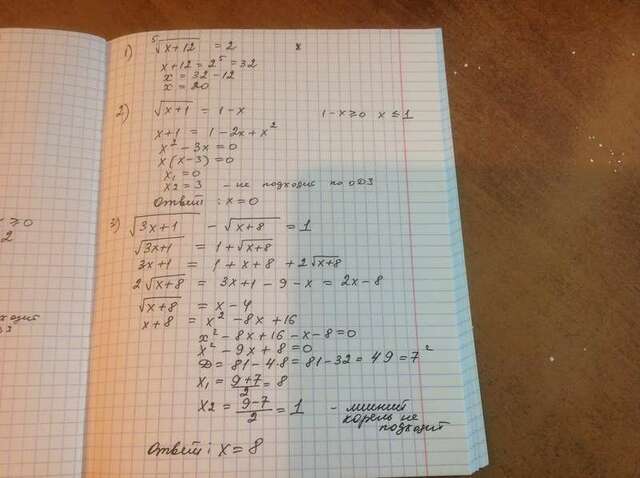 1) ⁵√(x+12) = 2 x
x+12 = 2⁵ = 32
x = 32-12
x = 20
2) √(x+1) = 1-x 1-x≥0 x≤1
x+1 = 1-2x+x²
x²-3x=0
x(x-3)=0
x₁=0
x2=3 - не подходит по ОДЗ
Ответ: x=0
3) √(3x+1) - √(x+8) = 1
√(3x+1) = 1+√(x+8)
3x+1 = 1+x+8+2√(x+8)
2√(x+8) = 3x+1-9-x = 2x-8
√(x+8) = x-4
x+8 = x²-8x+16
x²-8x+16-x-8=0
x²-9x+8=0
D = 81-4·8 = 81-32 = 49 = 7²
x₁ = (9+7)/2 = 8
x2 = (9-7)/2 = 1 - лишний
корень не
подходит
Ответ: x=8
≥0
2